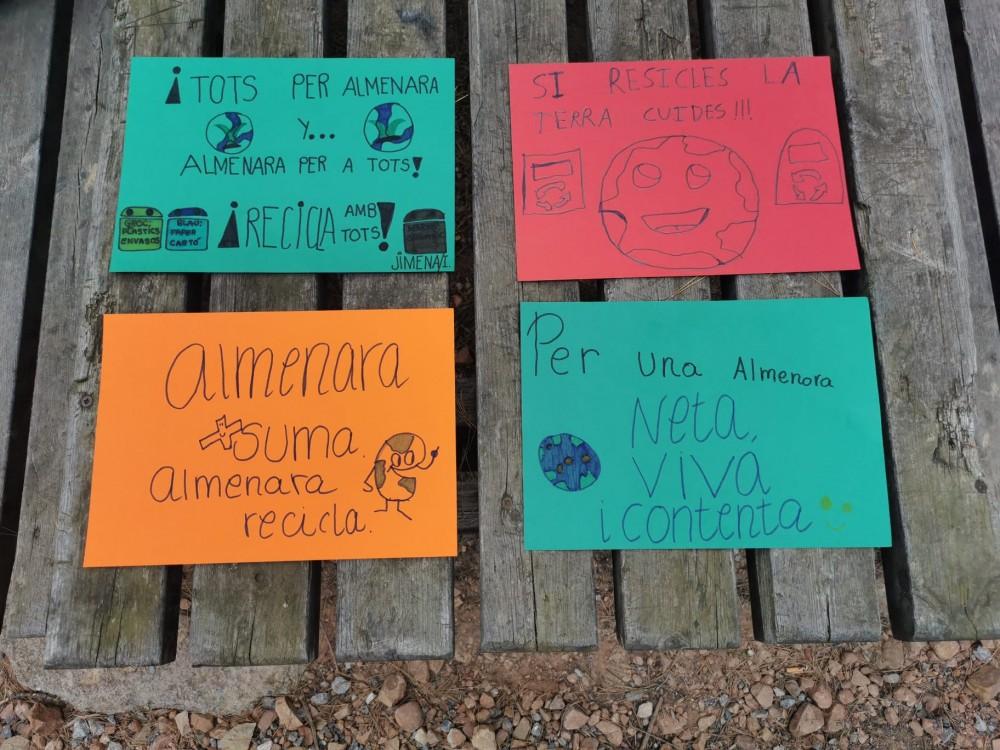 ¡TOTS PER ALMENARA
Y...
ALMENARA PER A TOTS!
GROC: PLASTICS ENVASOS
BLAU: PAPER CARTÓ
¡RECICLA AMB TOTS!
JIMENA I.
SI RESICLES LA
TERRA CUIDES!!!
almenara
suma.
almenara
recicla.
Per una Almenara
Neta,
viva
i contenta